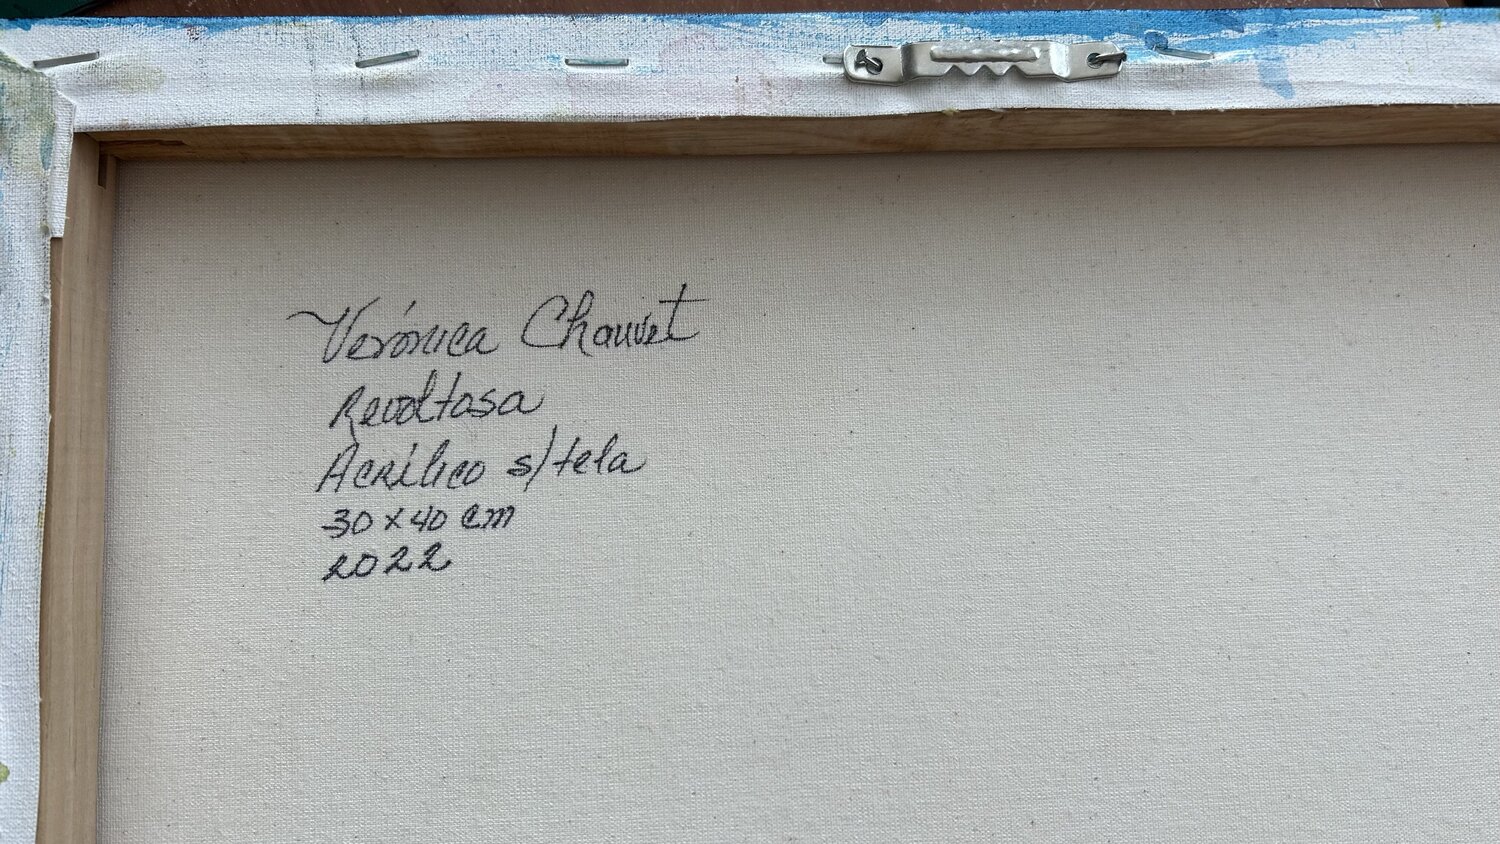 Verónica Chauvet
Revoltosa
Acrílico s/tela
30 x 40 cm
2022